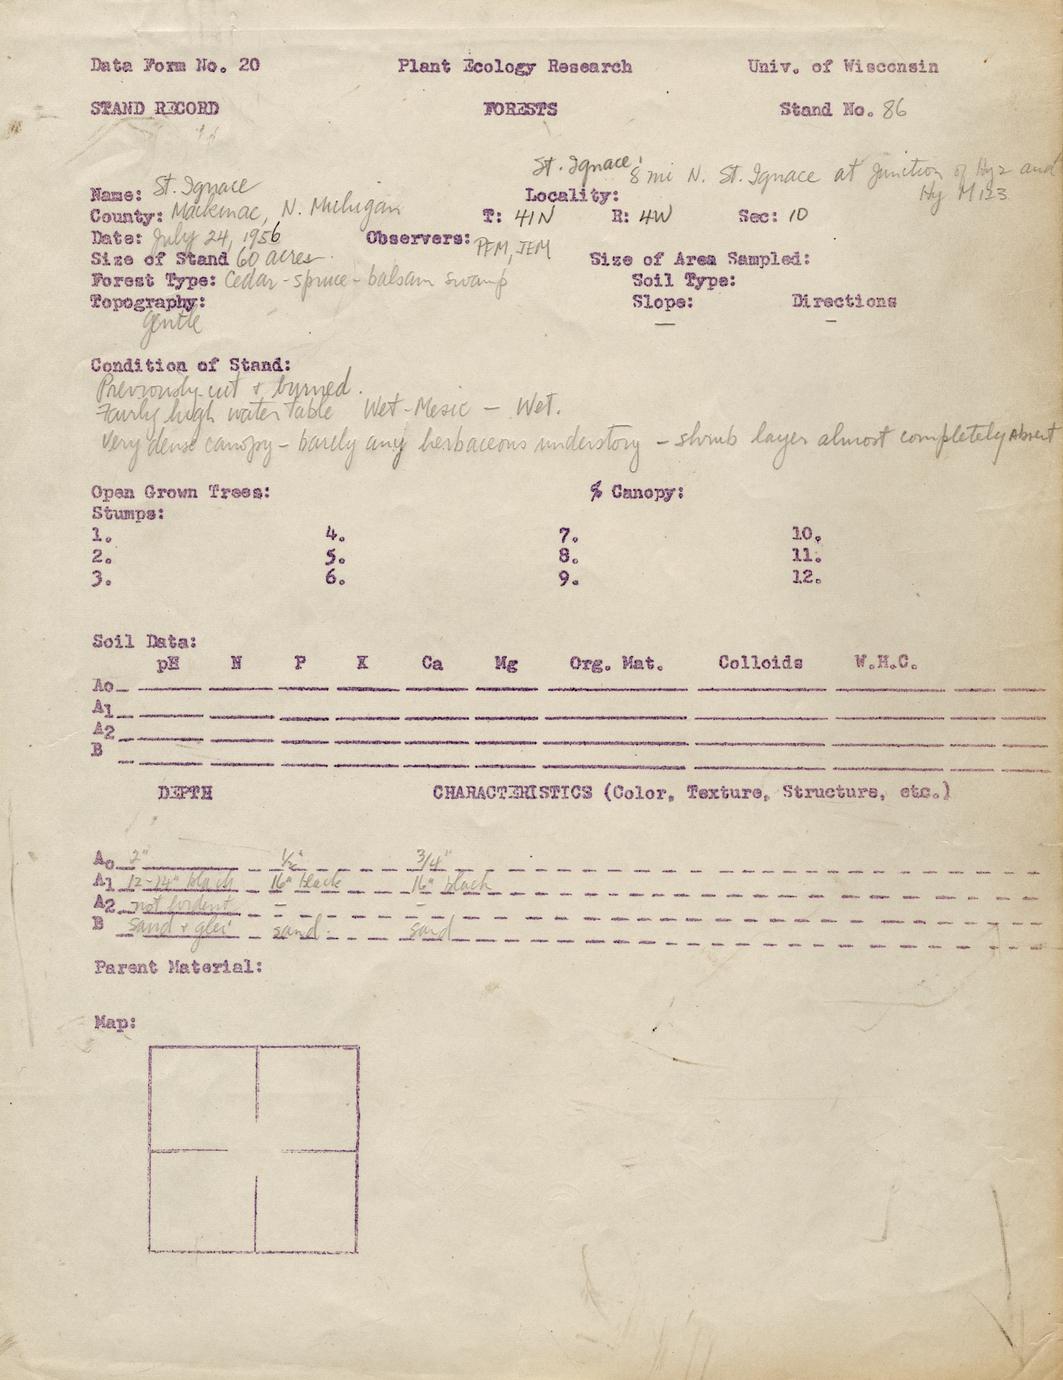 Data Form No. 20 Plant Ecology Research Univ. of Wisconsin
STAND RECORD FORESTS Stand No. 86
St. Ignace: 8 mi N. St. Ignace at Junction of Hy 2 and
Name: St. Ignace Locality: Hy M123
County: Mackinac, N. Michigan T: 41N R: 4W Sec: 10
Date: July 24, 1956 Observers: PFM, JEM
Size of Stand 60 acres. Size of Area Sampled:
Forest Type: Cedar-spruce-balsam swamp Soil Type:
Topography: Slope: Directions
Gentle — —
Condition of Stand:
Previously cut & burned.
Fairly high water table Wet-Mesic — Wet.
Very dense canopy - barely any herbaceous understory - shrub layer almost completely absent
Open Grown Trees: % Canopy:
Stumps:
1. 4. 7. 10.
2. 5. 8. 11.
3. 6. 9. 12.
Soil Data:
pH N P K Ca Mg Org. Mat. Colloids W.H.C.
Ao
A1
A2
B
DEPTH CHARACTERISTICS (Color, Texture, Structure, etc.)
Ao 2" ½" 3/4"
A1 12-14" black 16" black 16" black
A2 not evident — —
B sand & glei sand. sand
Parent Material:
Map: